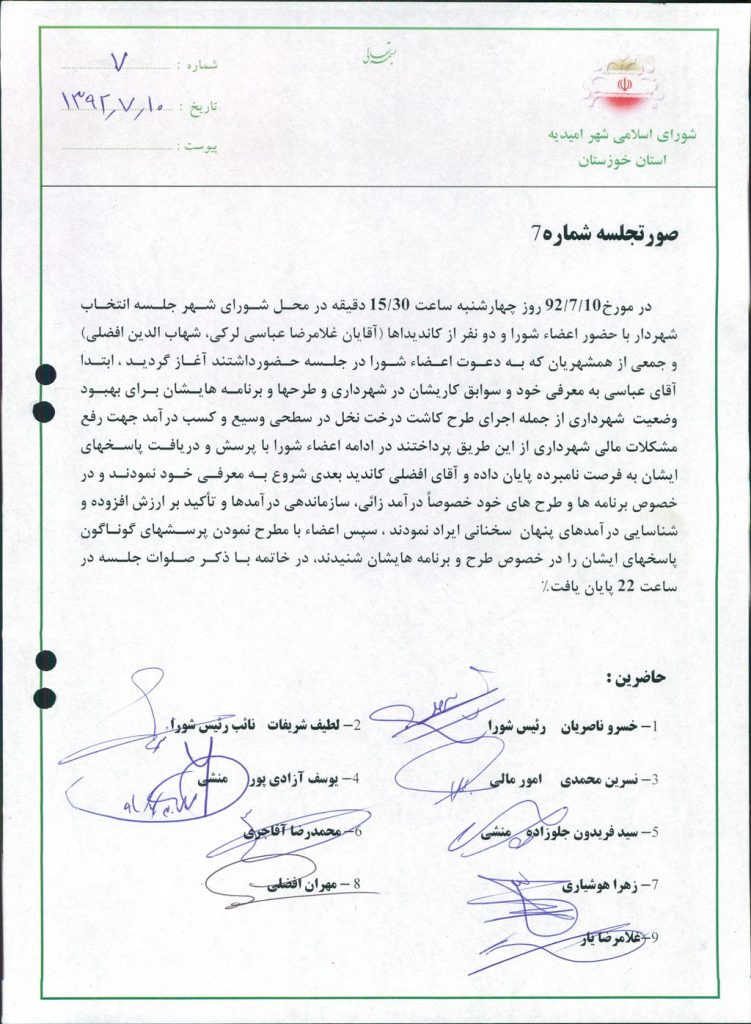 بسمه تعالی
شماره : ۷
تاریخ : ۱۳۹۲٫۷٫۱۰
پیوست :
شورای اسلامی شهر امیدیه
استان خوزستان
صورتجلسه شماره7
در مورخ92/7/10 روز چهارشنبه ساعت 15/30 دقیقه در محل شورای شهر جلسه انتخاب
شهردار با حضور اعضاء شورا و دو نفر از کاندیداها (آقایان غلامرضا عباسی لرکی، شهاب الدین افضلی)
و جمعی از همشهریان که به دعوت اعضاء شورا در جلسه حضورداشتند آغاز گردید ، ابتدا
آقای عباسی به معرفی خود و سوابق کاریشان در شهرداری و طرحها و برنامه هایشان برای بهبود
وضعیت شهرداری از جمله اجرای طرح کاشت درخت نخل در سطحی وسیع و کسب درآمد جهت رفع
مشکلات مالی شهرداری از این طریق پرداختند در ادامه اعضاء شورا با پرسش و دریافت پاسخهای
ایشان به فرصت نامبرده پایان داده و آقای افضلی کاندید بعدی شروع به معرفی خود نمودند و در
خصوص برنامه ها و طرح های خود خصوصاً درآمد زائی، سازماندهی درآمدها و تأکید بر ارزش افزوده و
شناسایی درآمدهای پنهان سخنانی ایراد نمودند ، سپس اعضاء با مطرح نمودن پرسشهای گوناگون
پاسخهای ایشان را در خصوص طرح و برنامه هایشان شنیدند، در خاتمه با ذکر صلوات جلسه در
ساعت 22 پایان یافت٪
حاضرین :
1- خسرو ناصریان رئیس شورا 2- لطیف شریفات نائب رئیس شورا
3- نسرین محمدی امور مالی 4- یوسف آزادی پور منشی
5- سید فریدون جلوزاده منشی 6- محمدرضا آقاجری
7- زهرا هوشیاری 8 - مهران افضلی
9- غلامرضا یار